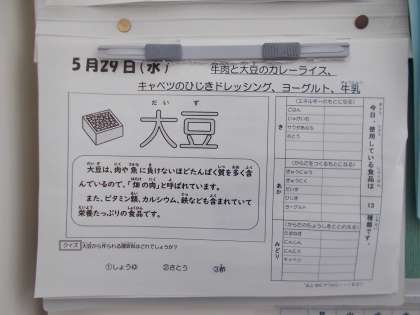 5月29日(水)
牛肉と大豆のカレーライス、
キャベツのひじきドレッシング、ヨーグルト、牛乳
だい ず
大豆
大豆は、肉や魚に負けないほどたんぱく質を多く含
んでいるので、「畑の肉」と呼ばれています。
また、ビタミン類、カルシウム、鉄なども含まれていて
栄養たっぷりの食品です。
クイズ 大豆から作られる調味料はどれでしょうか?
①しょうゆ ②さとう ③酢
今日、使用している食品は 13 種類です。
(エネルギーのもとになる)
き
ごはん
じゃがいも
サラダあぶら
さとう
(からだをつくるもとになる)
あか
ぎゅうにゅう
ぎゅうにく
だいず
ひじき
ヨーグルト
(からだのちょうしをととのえる)
みどり
たまねぎ
にんじん
にんにく
キャベツ